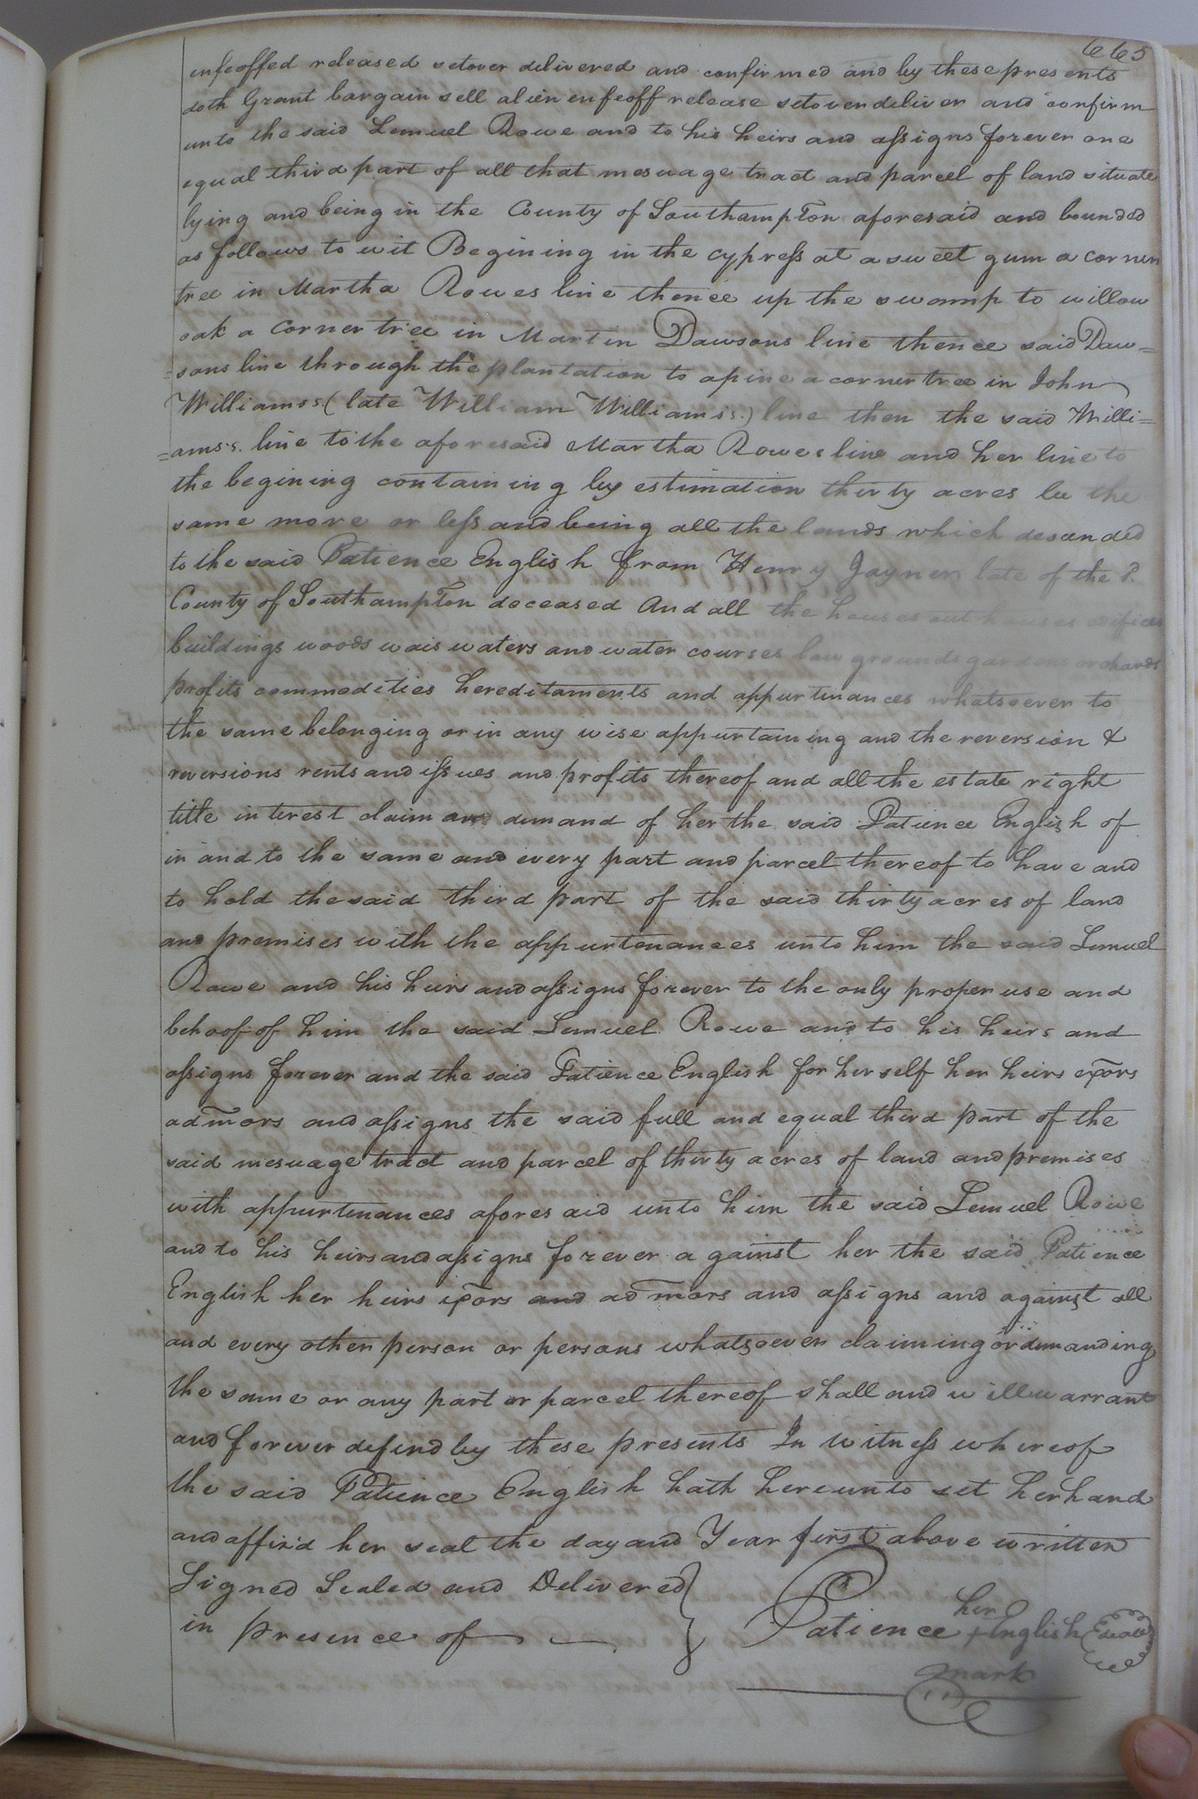 665
enfeoffed released setover delivered and confirmed and by these presents
doth Grant bargain sell alien enfeoff release setover deliver and confirm
unto the said Lemuel Rowe and to his heirs and assigns forever one
equal third part of all that mesuage tract and parcel of land situate
lying and being in the County of Southampton aforesaid and bounded
as follows to wit Begining in the cypress at a sweet gum a corner
tree in Martha Rowes line thence up the swamp to willow
oak a corner tree in Martin Dawsons line thence said Daw=
=sons line through the plantation to a pine a corner tree in John
Williams's (late William Williams's.) line then the said Willi=
=ams's. line to the aforesaid Martha Rowes line and her line to
the begining containing by estimation thirty acres be the
same more or less and being all the lands which desended
to the said Patience English from Henry Joyner late of the
County of Southampton deceased And all the houses out houses edifices
buildings woods wais waters and water courses low grounds gardens orchards
profits commodities hereditaments and appurtinances whatsoever to
the same belonging or in any wise appurtaining and the reversion &
reversions rents and issues and profits thereof and all the estate right
title interest claim and demand of her the said Patience English of
in and to the same and every part and parcel thereof to have and
to hold the said third part of the said thirty acres of land
and premises with the appurtenances unto him the said Lemuel
Rowe and his heirs and assigns forever to the only proper use and
behoof of him the said Lemuel Rowe and to his heirs and
assigns forever and the said Patience English for herself her heirs exors
admors and assigns the said full and equal third part of the
said mesuage tract and parcel of thirty acres of land and premises
with appurtenances aforesaid unto him the said Lemuel Rowe
and to his heirs and assigns forever against her the said Patience
English her heirs exors and admors and assigns and against all
and every other person or persons whatsoever claiming or demanding
the same or any part or parcel thereof shall and will warrant
and forever defend by these presents In witness whereof
the said Patience English hath hereunto set her hand
and affix'd her seal the day and Year first above written
Signed Sealed and Delivered
in presence of
her
Patience + English seal
mark